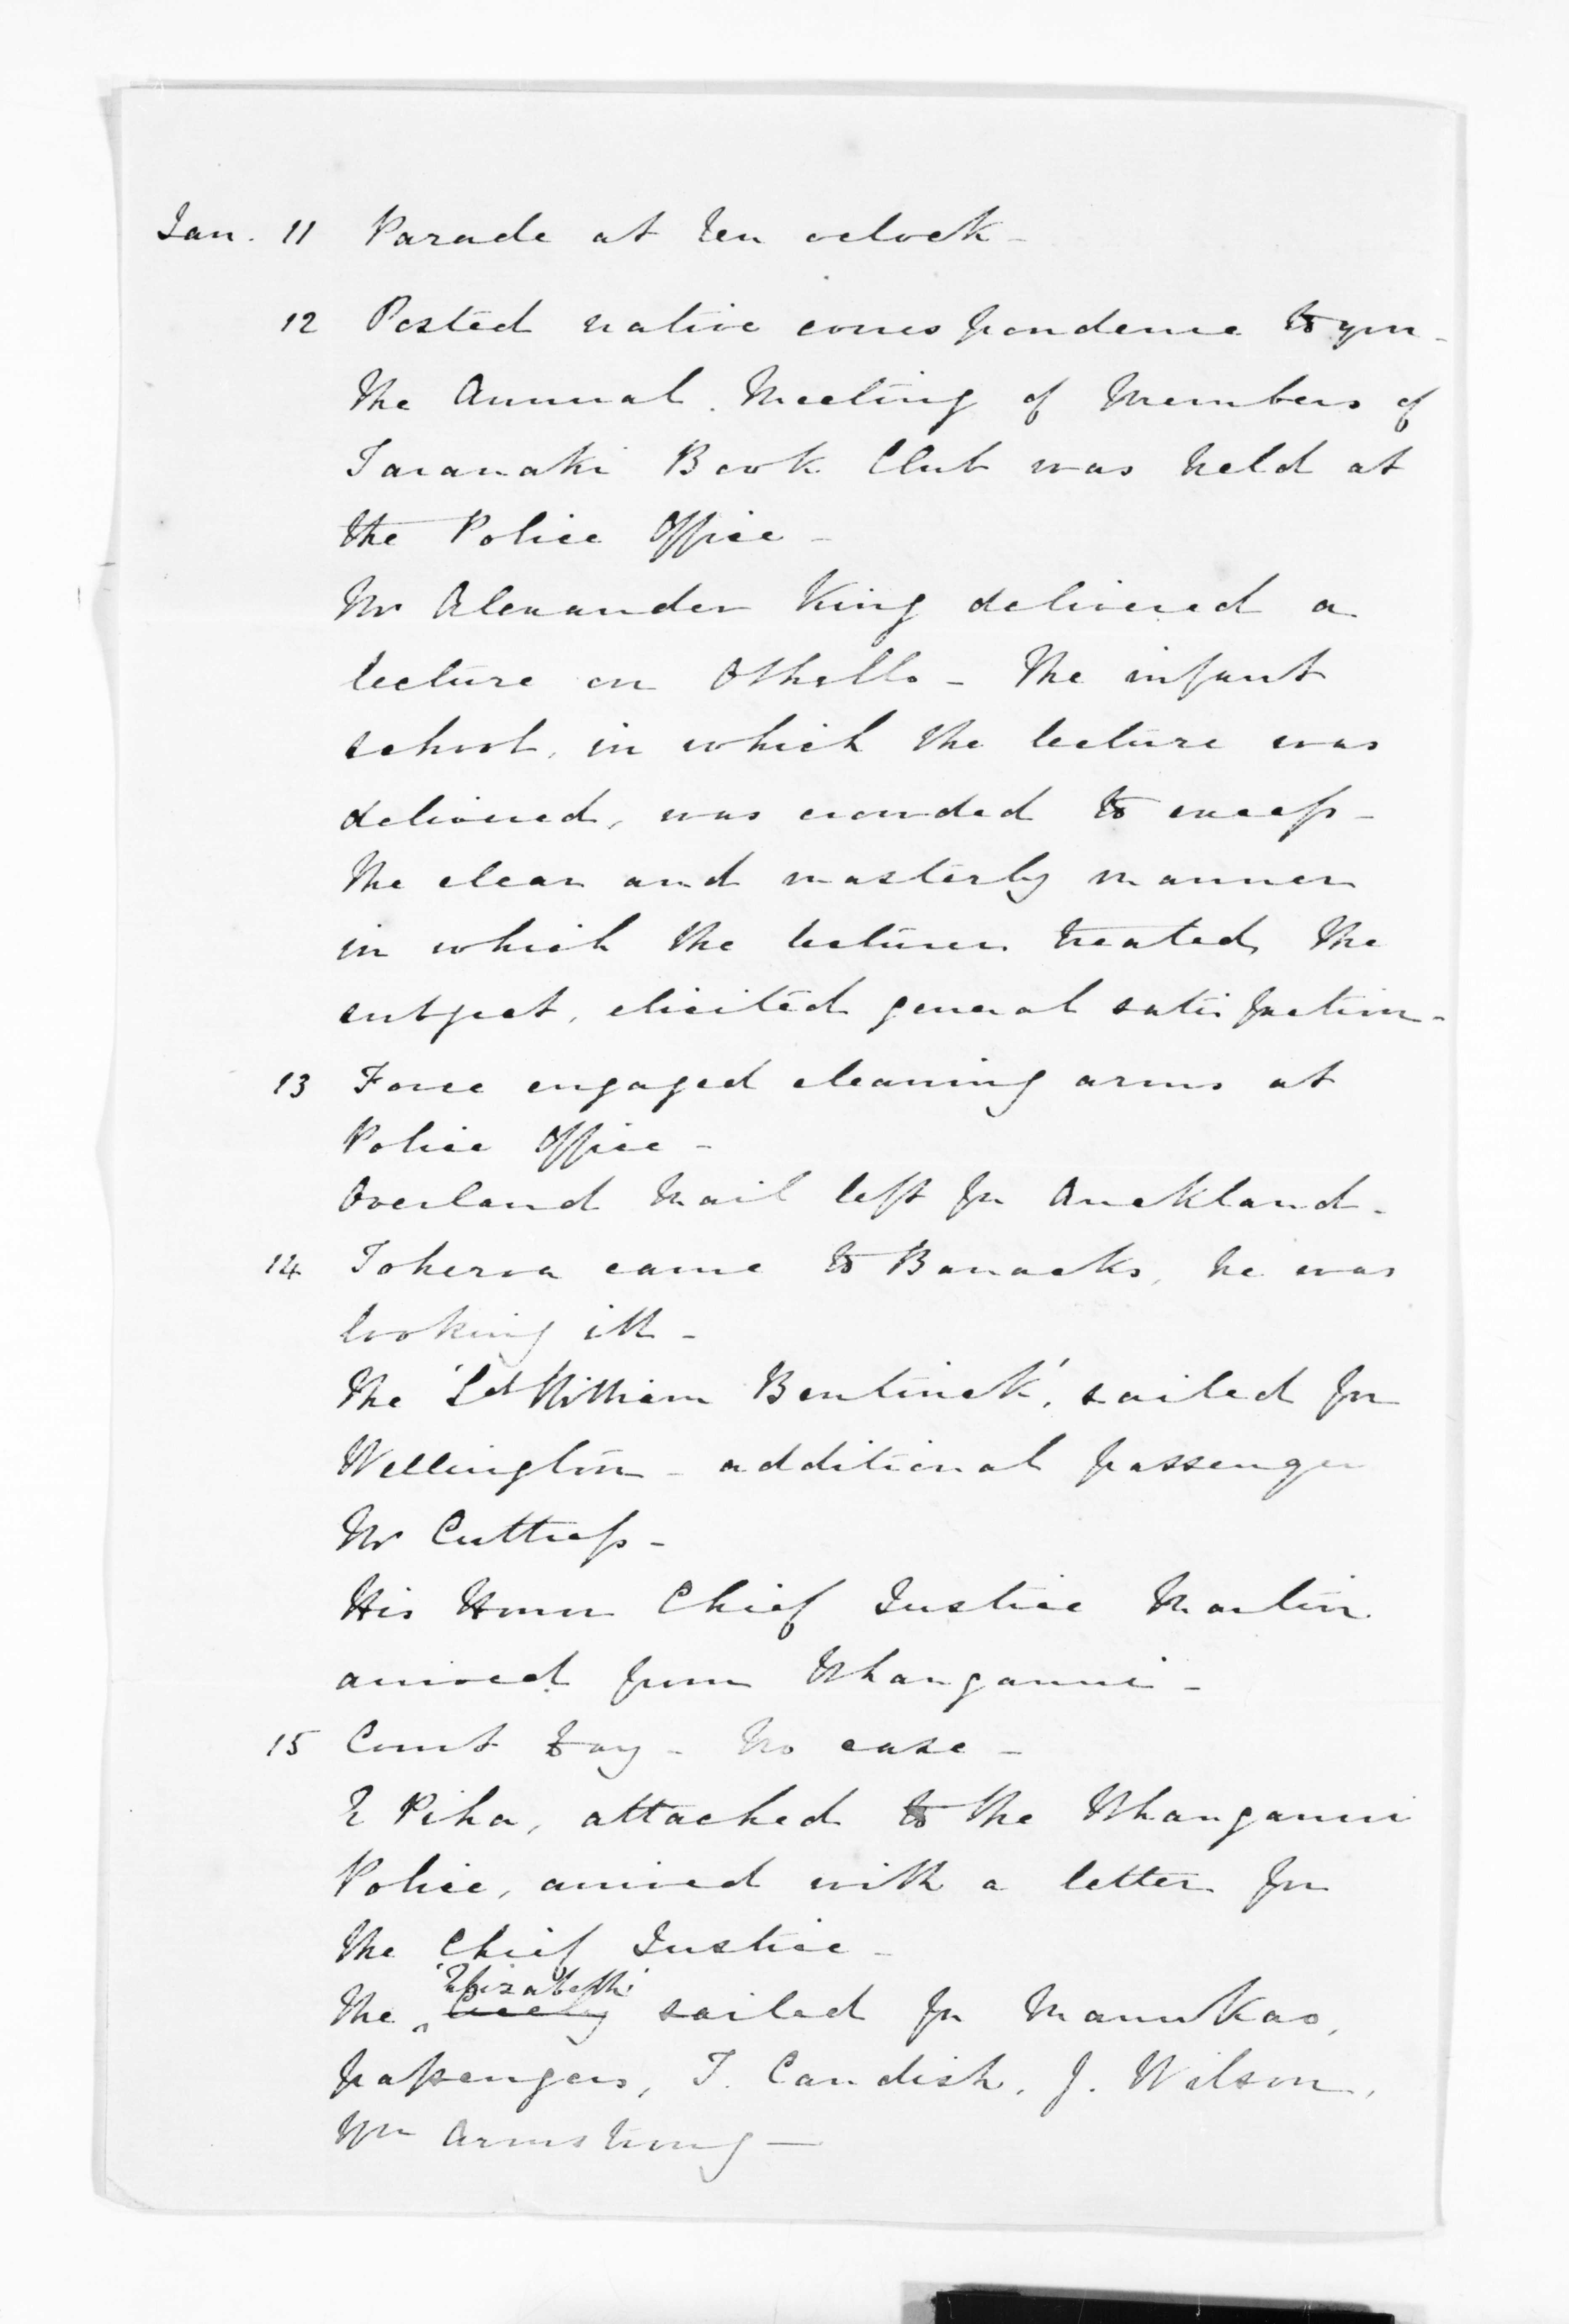 Jan. 11 Parade at ten oclock -
12 Posted native correspondence to you -
The Annual Meeting of Members of
Taranaki Book Club was held at
the Police Office -
Mr Alexander King delivered a
lecture on Othello - The infant
school, in which the lecture was
delivered, was crowded to excess -
The clear and masterly manner
in which the lecturer treated the
subject, elicited general satisfaction -
13 Force engaged cleaning arms at
Police Office -
Overland Mail left for Auckland -
14 Tokeroa came to Barracks, he was
looking ill -
The 'Ld William Bentinck', sailed for
Wellington - additional passenger
Mr Cuttress -
His Honor Chief Justice Martin
arrived from Whanganui -
15 Court day - No case -
E Piha, attached to the Whanganui
Police, arrived with a letter for
the Chief Justice -
'Elizabeth'
The sailed for Manukao,
passengers, T. Candish, J. Wilson,
Wm Armstrong -